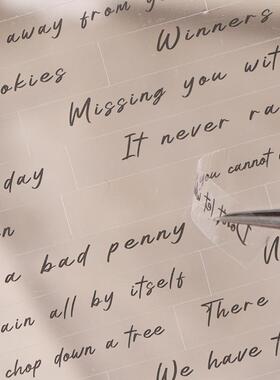 away from y
Winners
okies
Missing you wit
It never ra
you cannot
day
let
n
a bad penny
ain all by itself
There
chop down a tree
We have t